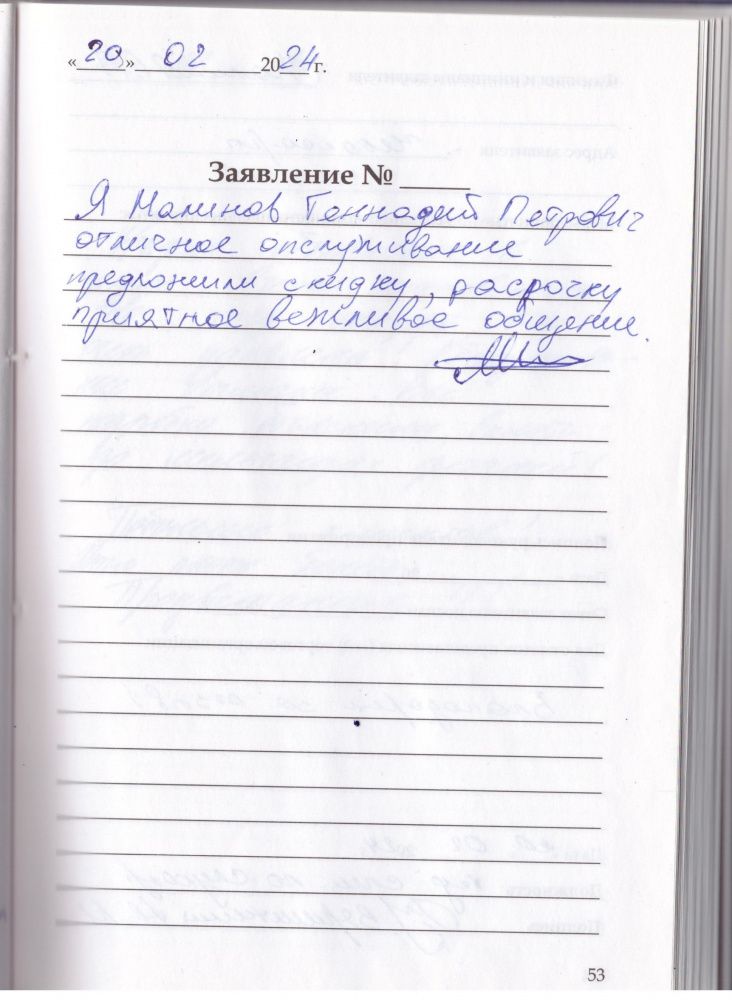 «20» 02 2024 г.
Заявление № ____
Я Малинов Геннадий Петрович
отличное опслуживание
предложили скидку, расрочку
приятное вежливое общение.
53